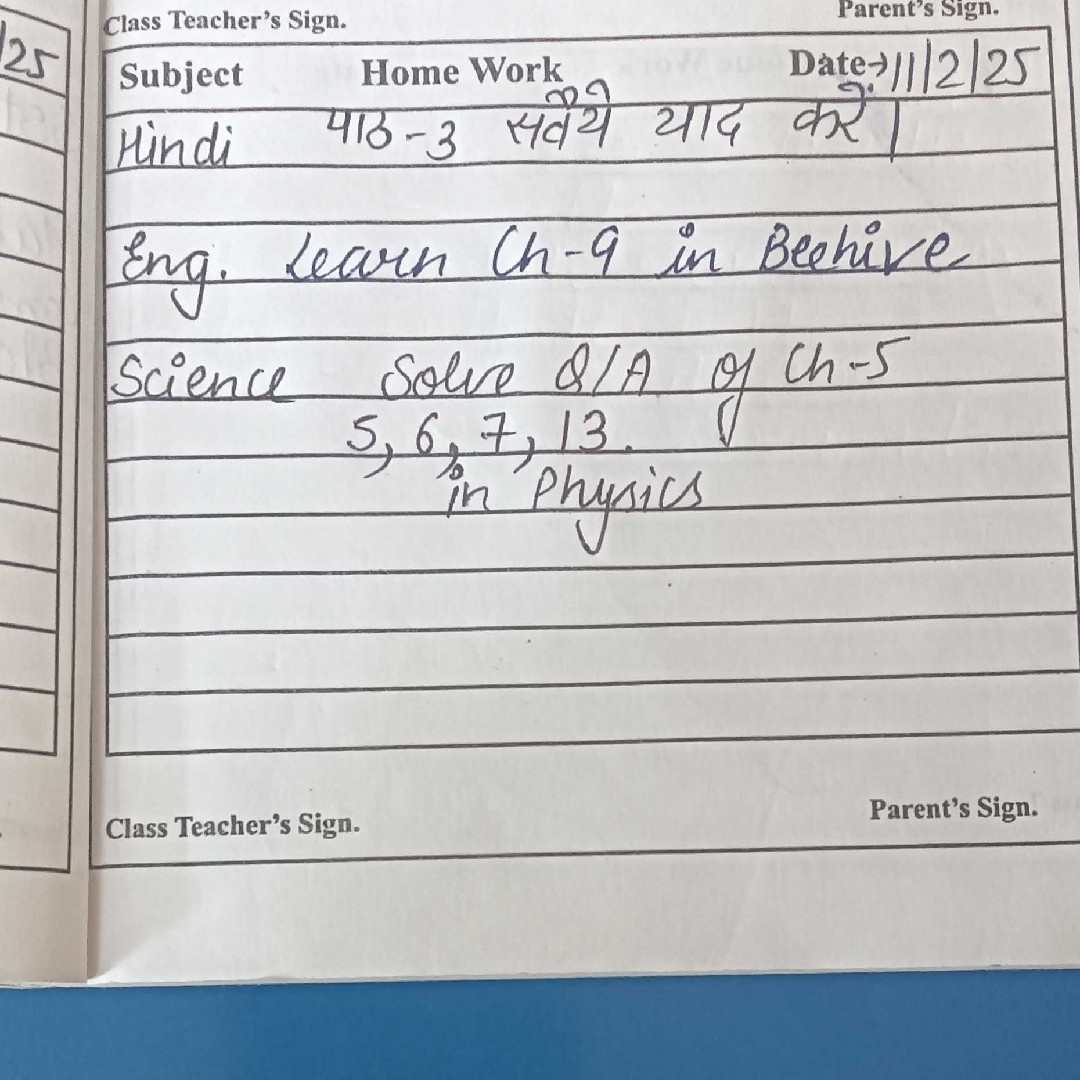 /25
Class Teacher's Sign. Parent's Sign.
Subject Home Work Date→ 11/2/25
Hindi पाठ-3 सवैये याद करें।
Eng. Learn Ch-9 in Beehive
Science Solve Q/A of Ch-5
5, 6, 7, 13.
in Physics
Class Teacher's Sign. Parent's Sign.